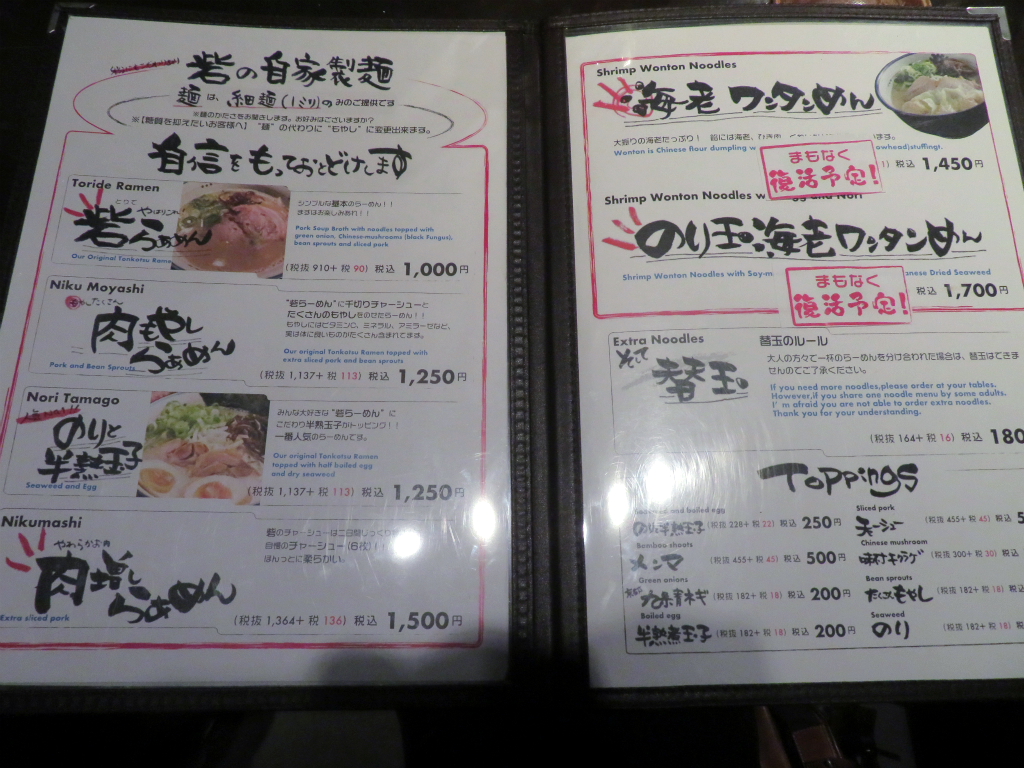 砦の自家製麺
麺は、細麺(1ミリ)のみのご提供です
※麺のかたさをお聞きします。お好みはございますか?
※【糖質を抑えたいお客様へ】 "麺" の代わりに "もやし" に変更出来ます。
自信をもっておとどけします
Toride Ramen
とりで
やはりこれ
砦らぁめん
Our Original Tonkotsu Ramen
シンプルな基本のらーめん!!
まずはお楽しみあれ!!
Pork Soup Broth with noodles topped with
green onion, Chinese-mushrooms (black Fungus),
bean sprouts and sliced pork
(税抜 910+ 税 90) 税込 1,000円
Niku Moyashi
もやしたくさん
肉もやし
らぁめん
Pork and Bean Sprouts
"砦らーめん" に千切りチャーシューと
たくさんのもやしをのせたらーめん!!
もやしにはビタミンC、ミネラル、アミラーゼなど、
実は体に良いものがたくさん含まれてます。
Our original Tonkotsu Ramen topped with
extra sliced pork and bean sprouts
(税抜 1,137+ 税 113) 税込 1,250円
Nori Tamago
のりと
半熟玉子
Seaweed and Egg
みんな大好きな "砦らーめん" に
こだわり半熟玉子がトッピング!!
一番人気のらーめんです。
Our original Tonkotsu Ramen
topped with half boiled egg
and dry seaweed
(税抜 1,137+ 税 113) 税込 1,250円
Nikumashi
やわらかお肉
肉増し
らぁめん
Extra sliced pork
砦のチャーシューは二日間じっくり
自慢のチャーシュー(6枚)!!
ほんっとに柔らかい。
(税抜 1,364+ 税 136) 税込 1,500円
Shrimp Wonton Noodles
海老ワンタンめん
大振りの海老たっぷり! 餡には海老、
ます。
Wonton is Chinese flour dumpling w
owhead)stuffingt.
まもなく
復活予定!
税込 1,450円
Shrimp Wonton Noodles w
and Nori
のり玉海老ワンタンめん
Shrimp Wonton Noodles with Soy-m
anese Dried Seaweed
まもなく
復活予定!
税込 1,700円
Extra Noodles
そして
替玉
替玉のルール
大人の方々で一杯のらーめんを分け合われた場合は、替玉はできま
せんのでご了承ください。
If you need more noodles,please order at your tables.
However,if you share one noodle menu by some adults.
I'm afraid you are not able to order extra noodles.
Thank you for your understanding.
(税抜 164+ 税 16) 税込 180
Toppings
Seaweed and boiled egg
のり半熟玉子 (税抜 228+ 税 22) 税込 250円
Sliced pork
チャーシュー (税抜 455+ 税 45) 税込 5
Bamboo shoots
メンマ (税抜 455+ 税 45) 税込 500円
Chinese mushroom
味付キクラゲ (税抜 300+ 税 30) 税込
Green onions
九条青ネギ (税抜 182+ 税 18) 税込 200円
Bean sprouts
たくさんもやし (税抜 182+ 税 18) 税込
Boiled egg
半熟煮玉子 (税抜 182+ 税 18) 税込 200円
Seaweed
のり (税抜 182+ 税 18) 税